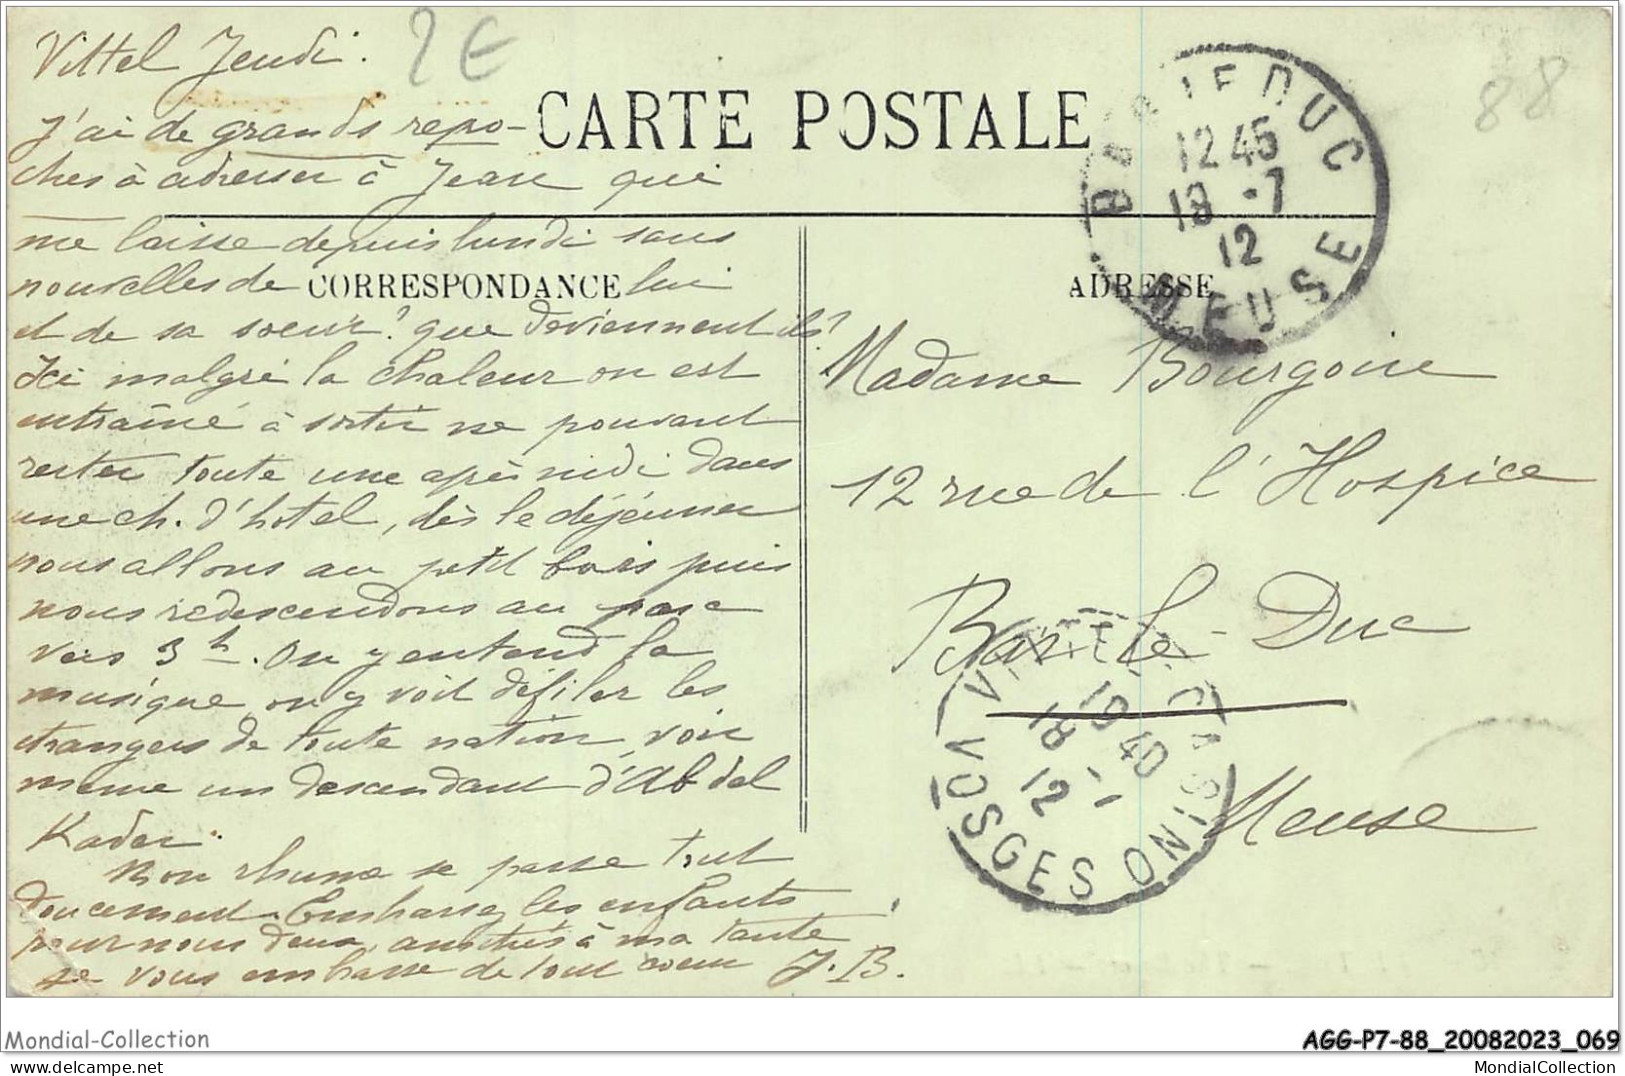 Vittel Jeudi.
2€
88
J'ai de grands repro-
CARTE POSTALE
ches à adresser à Jean qui
me laisse depuis lundi sans
nouvelles de lui
CORRESPONDANCE
et de sa soeur? que deviennent ils?
Ici malgré la chaleur on est
entraîné à sortir ne pouvant
rester toute une après midi dans
une ch. d'hôtel, dès le déjeuner
nous allons au petit bois puis
nous redescendons au parc
vers 3h. On y entend la
musique on y voit défiler les
étrangers de toute nation, voir
meme un descendant d'Abdel
Kader.
Mon rhume se passe tout
doucement. Embrassez les enfants
pour nous deux, ainsi à ma tante
je vous embrasse de tout coeur J. B.
ADRESSE
Madame Bourgoine
12 rue de l'Hospice
Bar-le-Duc
Meuse
BAR LE DUC
12 45
19 -7
12
MEUSE
VITTEL CASINO
19 40
18 -7
12
VOSGES
Mondial-Collection
AGG-P7-88_20082023_069
MondialCollection